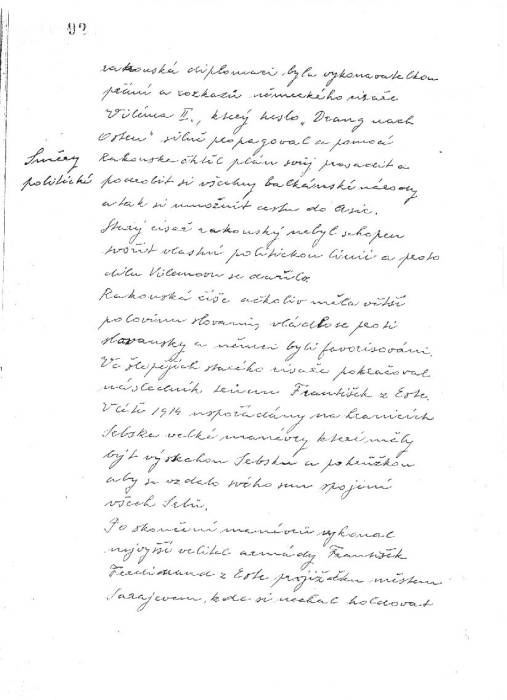 92
rakouská diplomaci byla vykonavatelkou
přání a rozkazů německého císaře
Viléma II., který heslo „Drang nach
Osten" silně propagoval a pomocí
Rakouska chtěl plán svůj prosadit a
Směry
politické
podrobit si všechny balkánské národy
a tak si umožnit cestu do Asie.
Starý císař rakouský nebyl schopen
tvořit vlastní politickou linii a proto
dílu Vilémovu se dařilo.
Rakouská říše ačkoliv měla větší
polovinu slovanů, vládlo se proti
slovansky a němci byli favorisováni.
Ve šlépějích starého císaře pokračoval
následník trůnu František z Este.
V létě 1914 uspořádány na hranicích
Srbska velké manévry které měly
být výstrahou Srbsku a pohrůžkou
aby se vzdalo svého snu spojení
všech Srbů.
Po skončení manévrů vykonal
nejvyšší velitel armády František
Ferdinand z Este projížďku městem
Sarajevem, kde si nechal holdovat